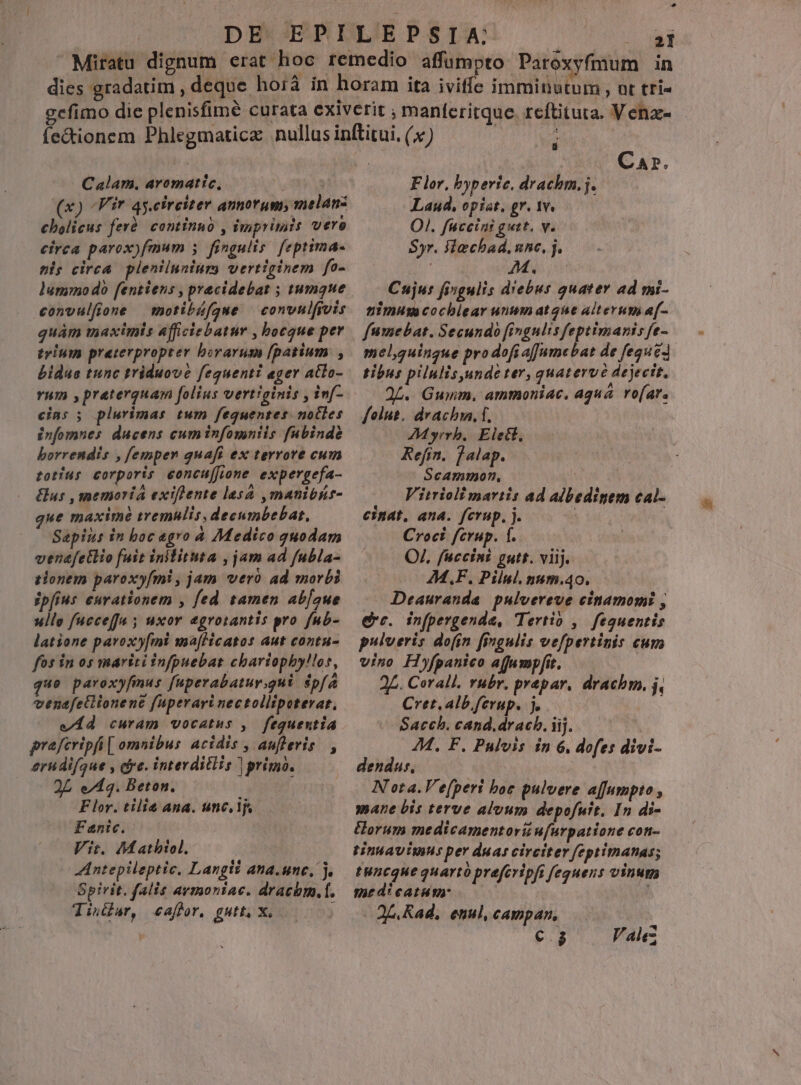 DE EPILEPSIA. 21
Miratu dignum erat hoc remedio aſſumpto Paroxyſmum in
dies gradatim, deque horâ in horam ita iviſſe imminutum, ut tri-
geſimo die pleniſsimè curata exiverit; manſeritque reſtituta. Venæ-
ſectionem Phlegmaticæ nullus inſtitui. (x)
CAP.
Calam. aromatic.
(x) Vir 45. circiter annorum, melan-
cholicus ferè continuò, imprimis vero
circa paroxyſmum; ſingulis ſeptima-
nis circa plenilunium vertiginem ſo-
lummodò ſentiens, præcidebat; tumque
convulſione motibúſque convulſivis
quàm maximis afficiebatur, hocque per
trium præterpropter horarum ſpatium,
biduo tunc triduovè ſequenti æger atto-
rum, præterquam ſolius vertiginis, inſ-
cius; plurimas tum ſequentes noctes
inſomnes ducens cum inſomniis ſubindè
horrendis, ſemper quaſi ex terrore cum
totius corporis concuſſione expergefa-
ctus, memoriâ exiſtente læsâ, manibús-
que maximè tremulis, decumbebat.
Sæpius in hoc ægro à Medico quodam
venæſectio fuit inſtituta, jam ad ſubla-
tionem paroxyſmi, jam verò ad morbi
ipſius curationem, ſed tamen abſque
ullo ſucceſſu; uxor ægrotantis pro ſub-
latione paroxyſmi maſticatos aut contu-
ſos in os mariti inſpuebat chariophyllos,
quo paroxyſmus ſuperabatur, qui ipſâ
venæſectionene ſuperari nec tollipoterat.
Ad curam vocatus, ſequentia
præſcripſi [omnibus acidis, auſteris,
erudiſque, &c. interdictis] primò.
♃ Aq. Beton.
Flor. tiliæ ana. unc. iſs
Fœnic.
Vit. Mathiol.
Antepileptic. Langii ana. unc. j.
Spirit. ſalis armoniac. drachm. ſ.
Tinctur. caſtor. gutt. x.
Flor. hyperic. drachm. j.
Laud. opiat. gr. iv.
Ol. ſuccini gutt. v.
Syr. ſtœchad. unc. j.
M.
Cujus ſingulis diebus quater ad mi-
nimum cochlear unum atque alterum aſ-
ſumebat. Secundò ſingulis ſeptimanis ſe-
mel, quinque pro doſi aſſumebat de ſequẽ-
tibus pilulis, unde ter, quatervè dejecit.
♃. Gumm. ammoniac. aquâ roſar.
ſolut. drachm. ſ.
Myrrh. Elect.
Reſin. Jalap.
Scammon.
Vitrioli martis ad albedinem cal-
cinat. ana. ſcrup. j.
Croci ſcrup. ſ.
Ol. ſuccini gutt. viij.
M. F. Pilul. num. 40.
Deauranda pulvereve cinamomi,
&c. inſpergenda. Tertiò, ſequentis
pulveris doſin ſingulis veſpertinis cum
vino Hyſpanico aſſumpſit.
♃. Corall. rubr. præpar. drachm. j.
Cret. alb. ſcrup. j.
Sacch. cand. drach. iij.
M. F. Pulvis in 6. doſes divi-
dendus.
Nota. Veſperi hoc pulvere aſſumpto,
mane bis terve alvum depoſuit. In di-
ctorum medicamentorũ uſurpatione con-
tinuavimus per duas circiter ſeptimanas;
tuncque quartò præſcripſi ſequens vinum
medicatum
♃. Rad. enul. campan.
C 3 Vale-